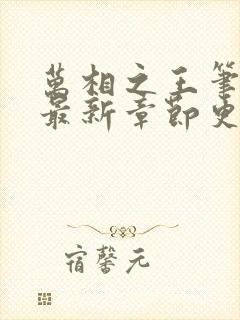 萬相之王筆
最新章節史
宿馨元